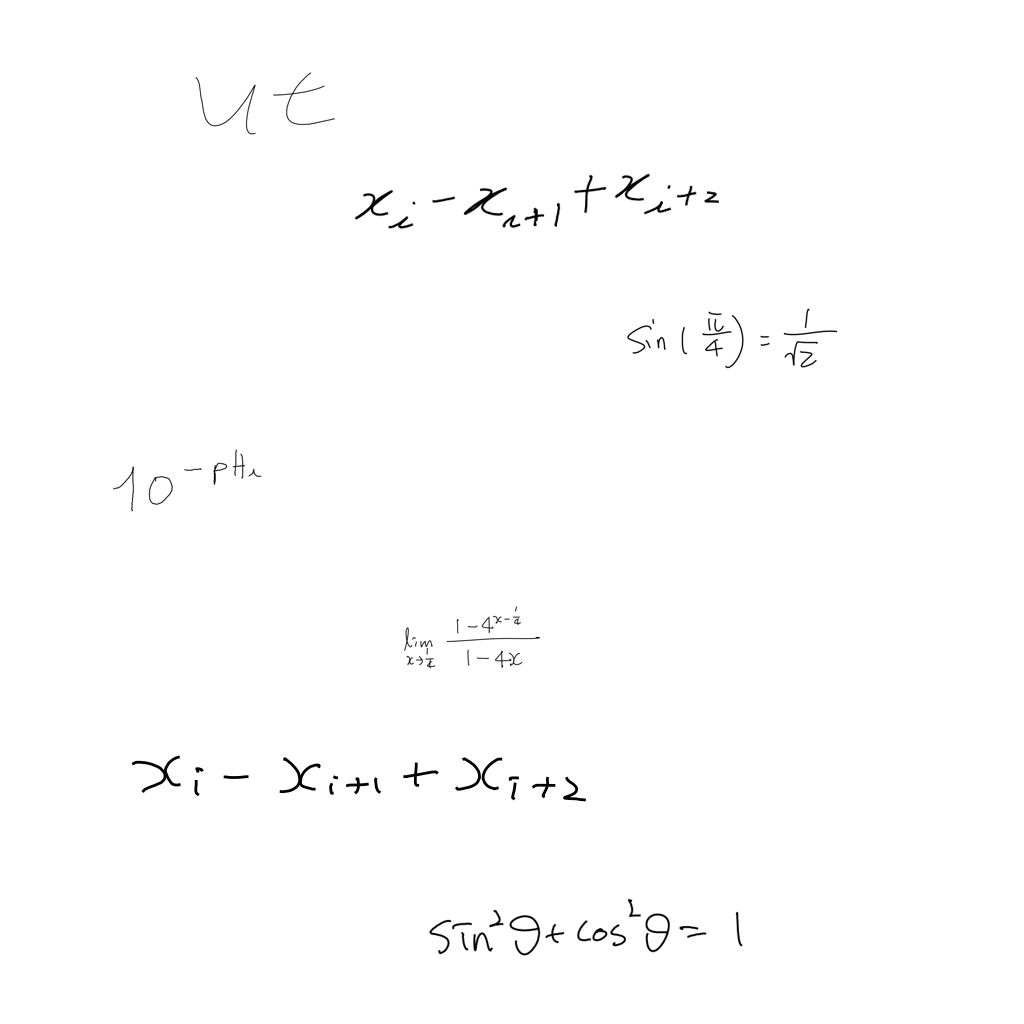 ut
x_i - x_{i+1} + x_{i+2}
sin(\frac{π}{4}) = \frac{1}{\sqrt{2}}
10^{-pH_i}
\lim_{x→\frac{1}{4}} \frac{1-4^{x-\frac{1}{4}}}{1-4x}
x_i - x_{i+1} + x_{i+2}
sin^2θ + cos^2θ = 1